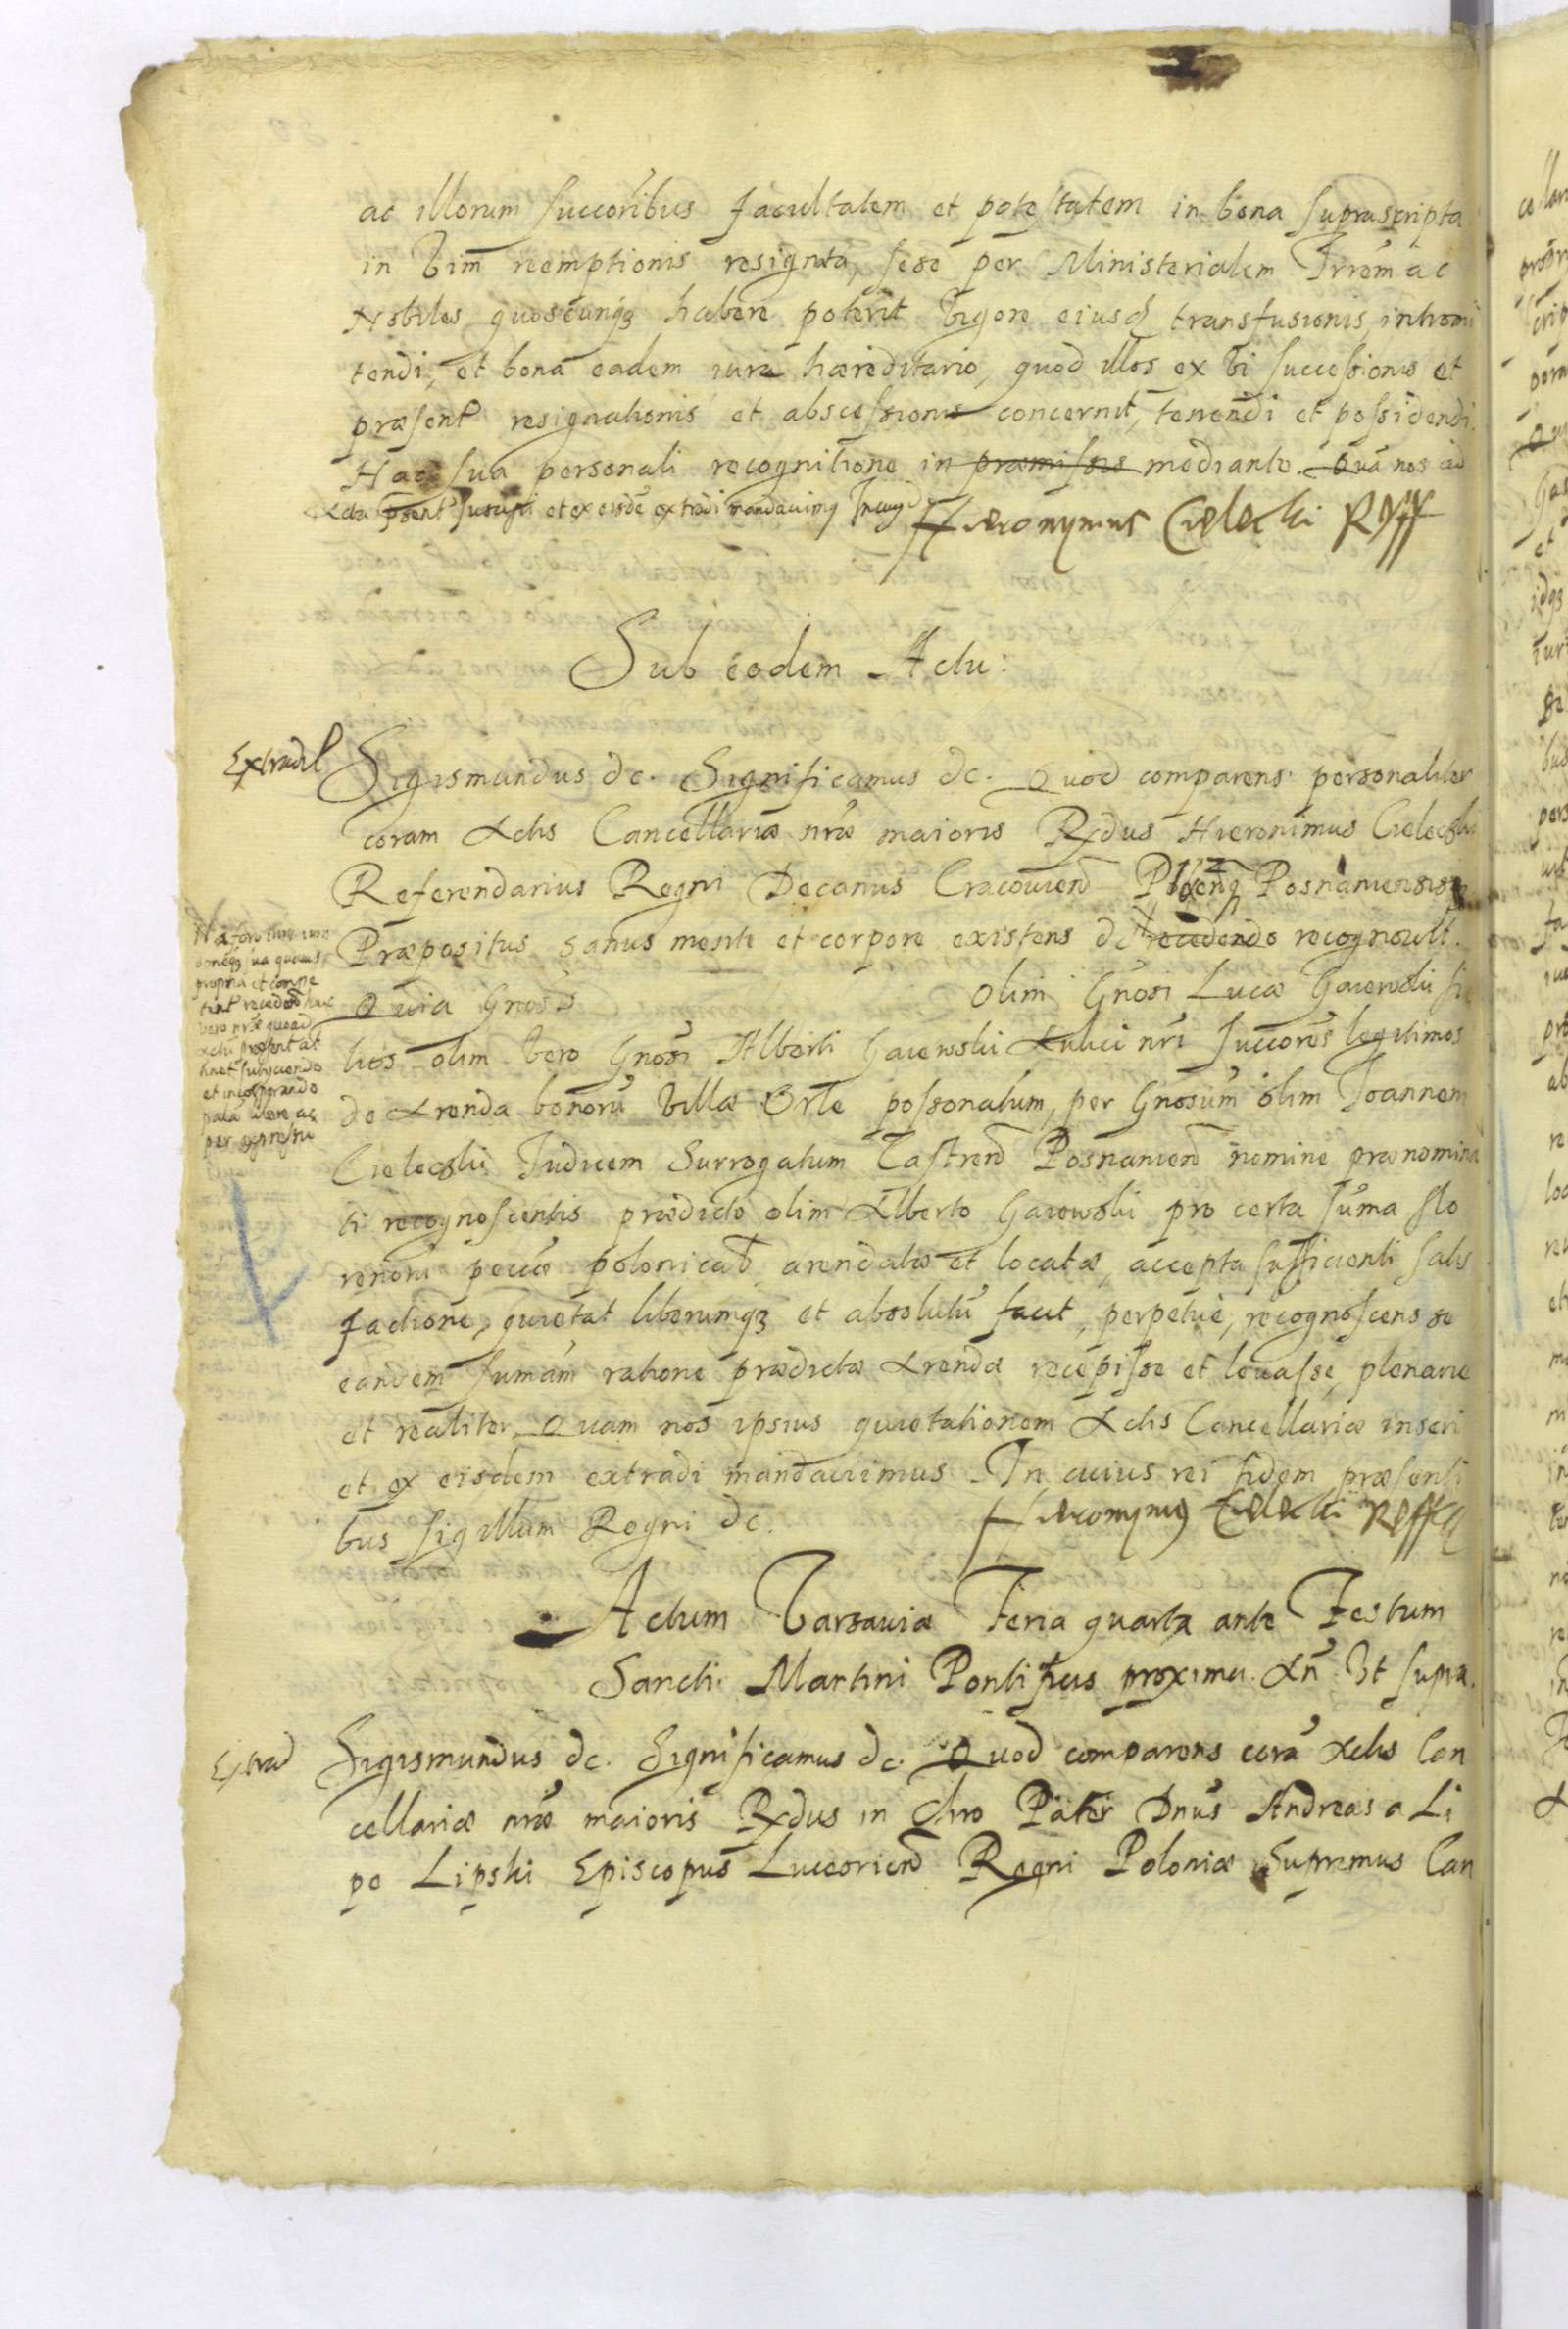 ac illorum succōribus facultatem et potestatem in bona suprascripta
in vim reemptionis resignata, sese per Ministerialem Trrēm ac
Nobiles quoscunq3 habere poterit vigore eiusd transfusionis, intromi
tendi, et bona eadem iure hæreditario, quod illos ex vi successionis et
præsent resignationis et abscessionis concernit, tenendi et possidendi.
Hac sua personali recognitione in præmissis mediante. Quā nos ad
Acta pōsent suscipi et ex eisdē extradi mandavimq In cuiq
Hieronymus Cielecki Reff
Sub eodem Actu:
Extradit
Sigismundus &c. Significamus &c. Quod comparens personaliter
coram Actis Cancellariæ nrāe maioris Rndus Hieronimus Cielecki
Referendarius Regni Decanus Cracovien Plocenq Posnaniensisq
Præpositus sanus mente et corpore existens &c recedendo recognovit.
Quia Gnōsos olim Gnōsi Lucæ Gaiewski fi
lios olim vero Gnōsi Alberti Gaiewski Aulici nrī succōres legitimos
de Arenda bonorū villæ Orle possonatum, per Gnōsum olim Joannem
Cielecki Judicem Surrogatum Castren Posnanien nomine prænomina
ti recognoscentis prædicto olim Alberto Gaiewski pro certa sūma flo
renorū pecūæ polonicał arendatæ et locatæ, accepta sufficienti satis
factione, quietat liberumq3 et absolutū facit, perpetue, recognoscens se
eandem sumām ratione prædictæ Arendæ recepisse et levasse, plenarie
et realiter. Quam nos ipsius quietationem Actis Cancellariæ inseri
et ex eisdem extradi mandavimus. In cuius rei fidem præsenti
bus sigillum Regni &c.
Hieronymq Cielecki Reff
a foro
propria et
recedend hac
vero nræ quoad
Actū præsent at
tinet subyciendo
et incorporando
ac
per expressū
Actum Varsaviæ Feria quarta ante Festum
Sancti Martini Pontificis proxima. An Vt supra.
Extrad
Sigismundus &c. Significamus &c. Quod comparens corā Actis Can
cellariæ nrāe maioris Rndus in Chro Pater Dnus Andreas a Li
pe Lipski Episcopus Luceorien Regni Poloniæ Supremus Can